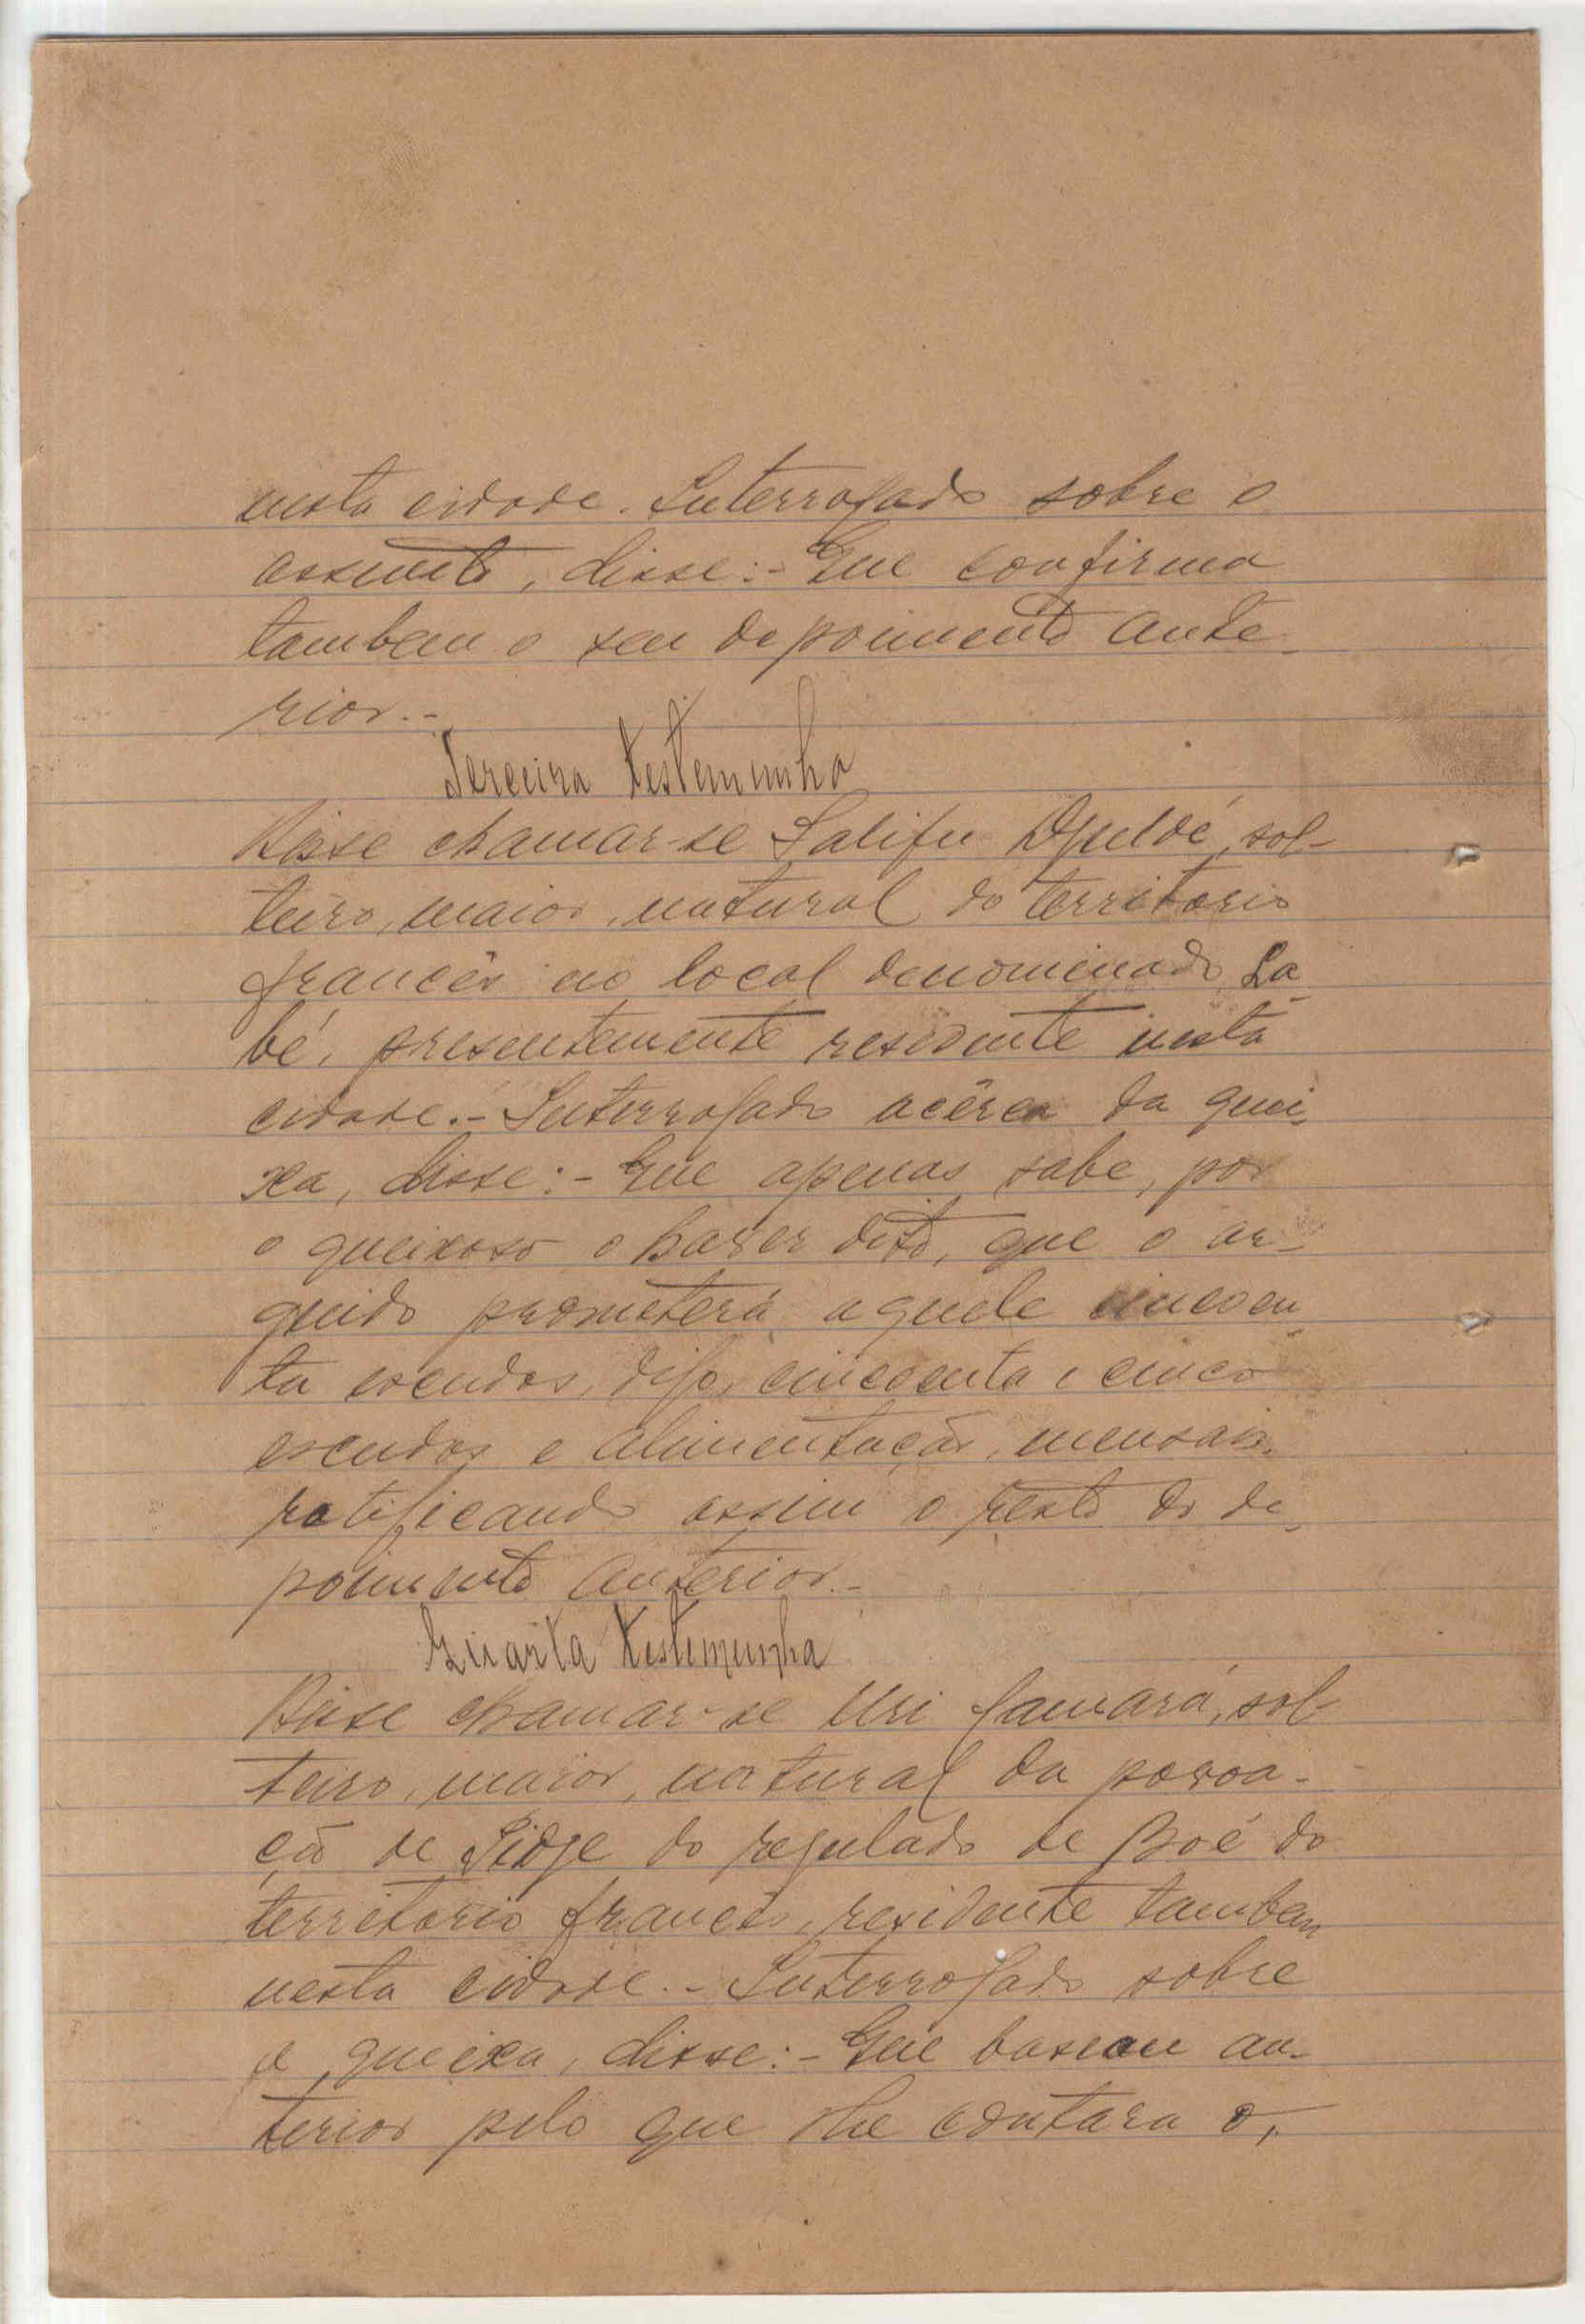 nesta cidade. Interrogado sobre o
assunto, disse:- Que confirma
tambem o seu depoimento ante-
rior.-
Terceira Testemunha
Disse chamar-se Salifu Djuldé, sol-
teiro, maior, natural do territorio
francês no local denominado La-
bé, presentemente residente nesta
cidade.- Interrogado acêrca da quei-
xa, disse:- Que apenas sabe, por
o queixoso o haver dito, que o ar-
guido prometera aquele cincoen
ta escudos, digo, cincoenta e cinco
escudos e alimentação, mensais,
ratificando assim o resto do de-
poimento anterior.-
Quarta Testemunha
Disse chamar-se Uri Camará, sol-
teiro, maior, natural da povoa-
ção de Sidge do regulado de Boé do
territorio francês, residente tambem
nesta cidade.- Interrogado sobre
a queixa, disse:- Que an-
terior pelo que lhe contara o,